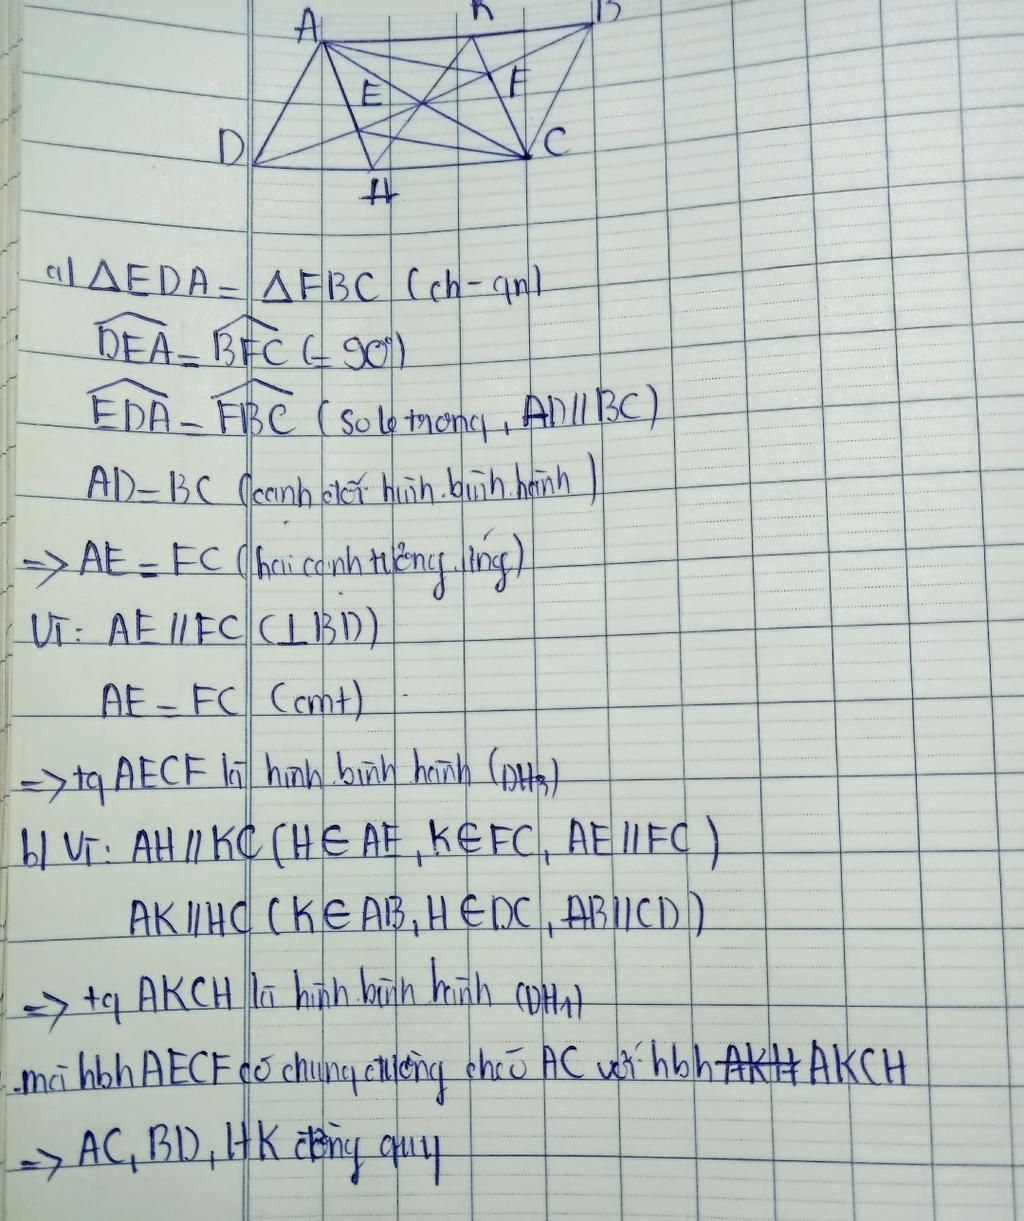 A K B
E F
D C
H
a) ΔEDA = ΔFBC (ch-gn)
DEA = BFC (= 90°)
EDA = FBC (so le trong, AD // BC)
AD = BC (cạnh đối hình bình hành)
=> AE = FC (hai cạnh tương ứng)
Vì: AE // FC (⊥ BD)
AE = FC (cmt)
=> tg AECF là hình bình hành (DH3)
b) Vì: AH // KC (H ∈ AE, K ∈ FC, AE // FC)
AK // HC (K ∈ AB, H ∈ DC, AB // CD)
=> tg AKCH là hình bình hành (DH1)
mà hbh AECF có chung đường chéo AC với hbh AKH AKCH
=> AC, BD, HK đồng quy